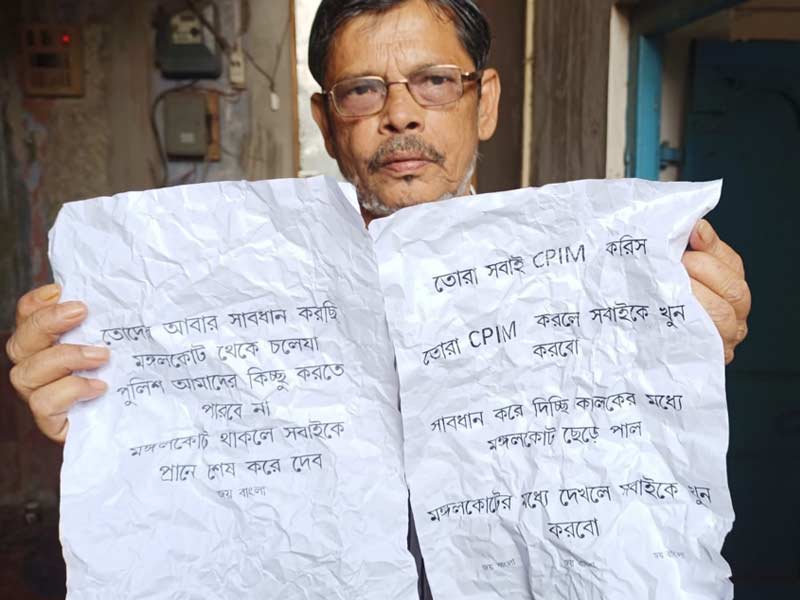 তোদের আবার সাবধান করছি
মঙ্গলকোট থেকে চলেযা
পুলিশ আমাদের কিচ্ছু করতে
পারবে না
মঙ্গলকোট থাকলে সবাইকে
প্রানে শেষ করে দেব
জয় বাংলা
তোরা সবাই CPIM করিস
তোরা CPIM করলে সবাইকে খুন
করবো
সাবধান করে দিচ্ছি কালকের মধ্যে
মঙ্গলকোট ছেড়ে পাল
মঙ্গলকোটের মধ্যে দেখলে সবাইকে খুন
করবো
জয় বাংলা জয় বাংলা জয় বাংলা